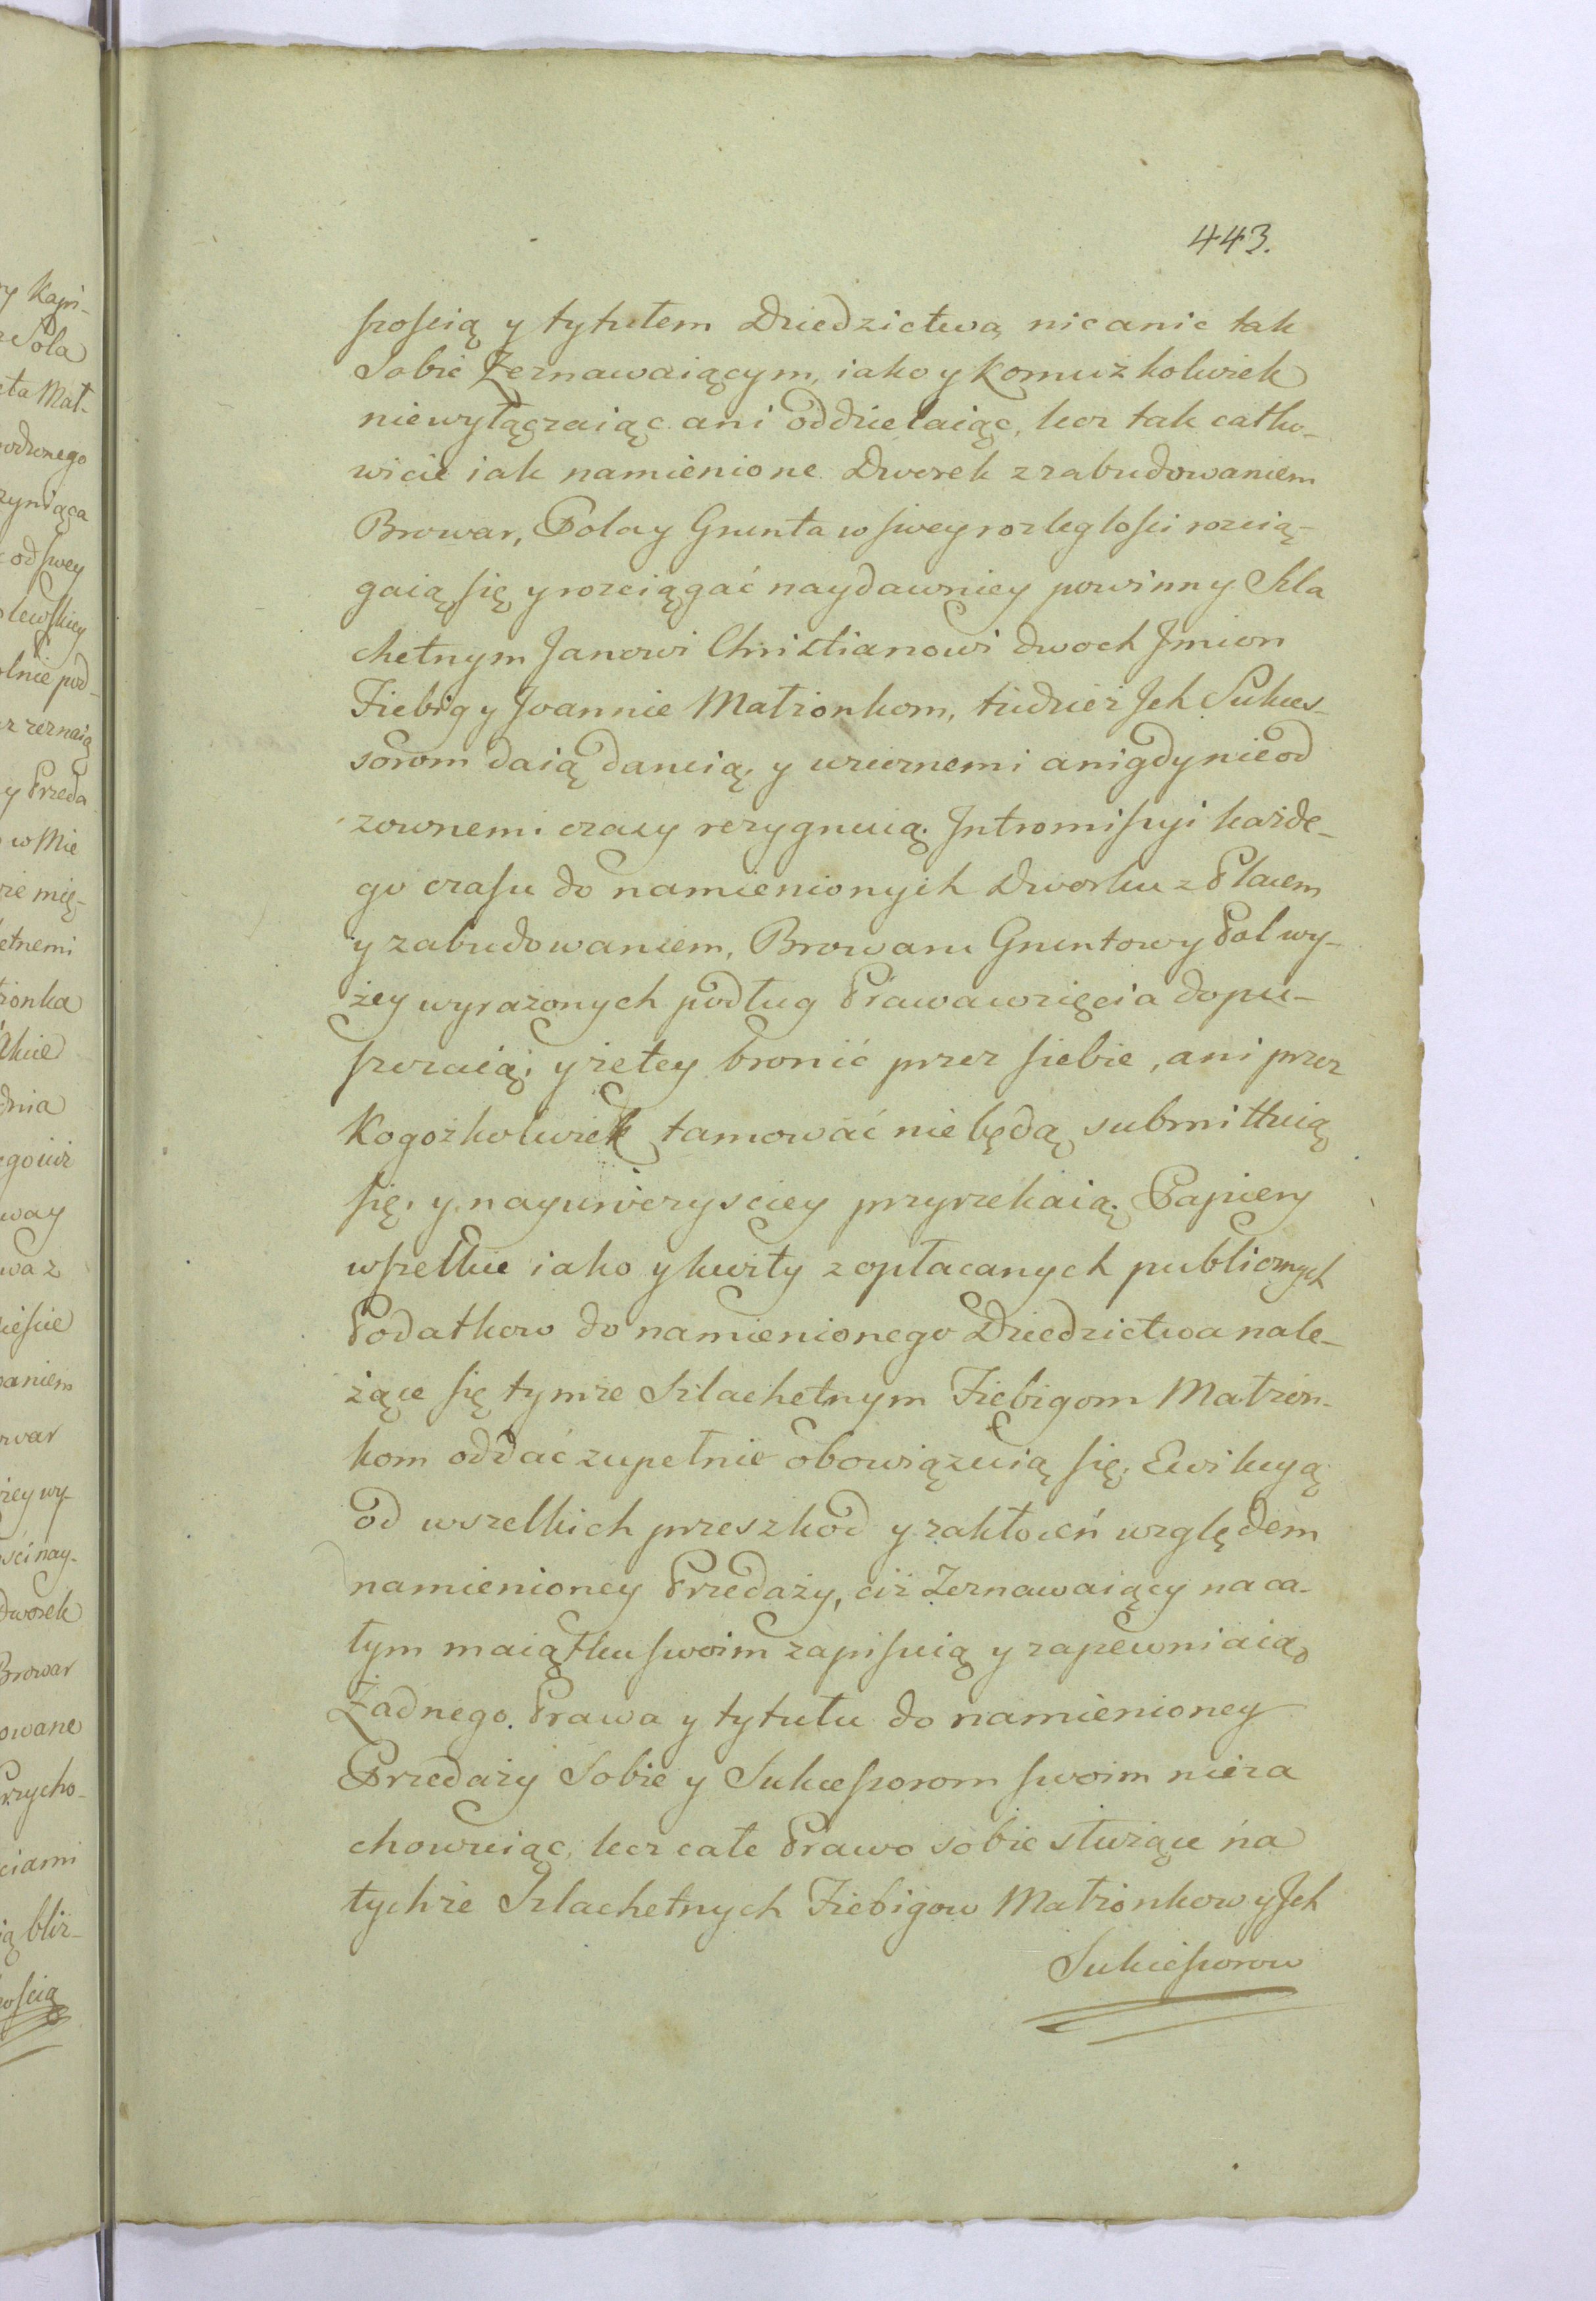 443.
szoscią y tytułem Dziedzictwa, nic a nic tak
Sobie Zeznawaiącym, iako y komuż kolwiek
niewyłączaiąc ani oddzielaiąc, lecz tak całko-
wicie iak namienione Dworek z zabudowaniem
Browar, Pola y Grunta w swey rozległosci rozcią-
gaią się y rozciągać naydawniey powinny Szla
chetnym Janowi Christianowi dwoch Jmion
Fiebig y Joannie Małżonkom, tudzież Jch Sukces-
sorom daią daruią, y wiecznemi a nigdy nie od
zownemi czasy rezygnuią. Intromissyi każde-
go czasu do namienionych Dworku z Placem
y zabudowaniem, Browaru Gruntow y Pol wy-
żey wyrażonych podług Prawa wzięcia dopu-
szczaią, y że tey bronić przez siebie, ani przez
Kogożkolwiek tamować nie będą submittuią
się, y nayuroczysciey przyrzekaią. Papiery
wszelkie iako y kwity z opłacanych publicznych
Podatkow do namienionego Dziedzictwa nale-
żące się tymże Szlachetnym Fiebigom Małżon-
kom oddać zupełnie obowiązuią się. Ewikcyą
od wszelkich przeszkod y zakłoceń względem
namienioney Przedaży, ciż Zeznawaiący na ca-
łym maiątku swoim zapisuią y zapewniaią,
Żadnego Prawa y tytułu do namienioney
Przedaży Sobie y Sukcessorom swoim nieza
chowuiąc, lecz całe Prawo sobie służące na
tychże Szlachetnych Fiebigow Małżonkow y Jch
Sukcessorow
ry Kapi-
Sola
eta Mał-
odzonego
zyniąca
od swey
lewskiey
olnie pod-
z zeznaią
y Przeda
w Mie
ze mię-
etnemi
żonka
Akcie
dnia
ego iuż
way
wa z
iescie
aniem
war
żey wy-
ści nay-
dworek
Browar
owane
Przycho-
ciami
ią bliż-
oscią